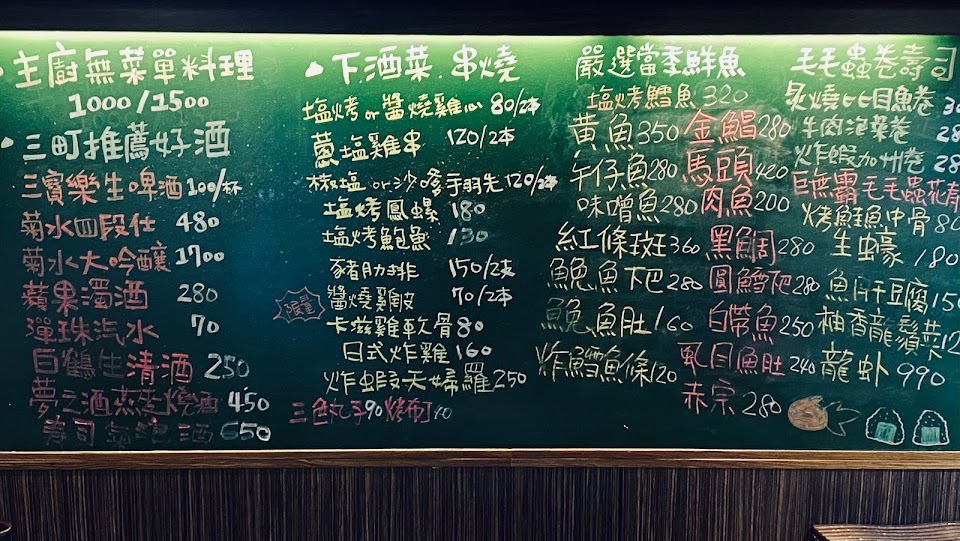 主廚無菜單料理
1000/1500
三町推薦好酒
三寶樂生啤酒 100/杯
菊水四段仕 480
菊水大吟釀 1700
蘋果濁酒 280
彈珠汽水 70
白鶴生清酒 250
夢之酒蒸麦燒酒 450
壽司 酒 650
下酒菜.串燒
塩烤or醬燒雞 80/2本
蔥塩雞串 120/2本
椒塩or沙嗲手羽先 120/2本
塩烤鳳螺 180
塩烤鮑魚 130
豬肋排 150/2支
限量
醬燒雞皮 70/2本
卡滋雞軟骨 80
日式炸雞 160
炸蝦天婦羅 250
三色丸子90 烤布丁
嚴選當季鮮魚
塩烤鱈魚 320
黃魚350 金鯧280
午仔魚280 馬頭420
味噌魚280 肉魚200
紅條斑360 黑鯛280
鮸魚下巴280 圓鱈
鮸魚肚160 白帶魚250
炸鱈魚條120 虱目魚肚240
赤宗280
毛毛蟲卷壽司
炙燒比目魚卷
牛肉泡菜卷
炸蝦加州卷
巨無霸毛毛蟲花壽
烤鮭魚中骨 80
生蠔 180
魚肝豆腐 150
柚香龍鬚菜
龍虾 990